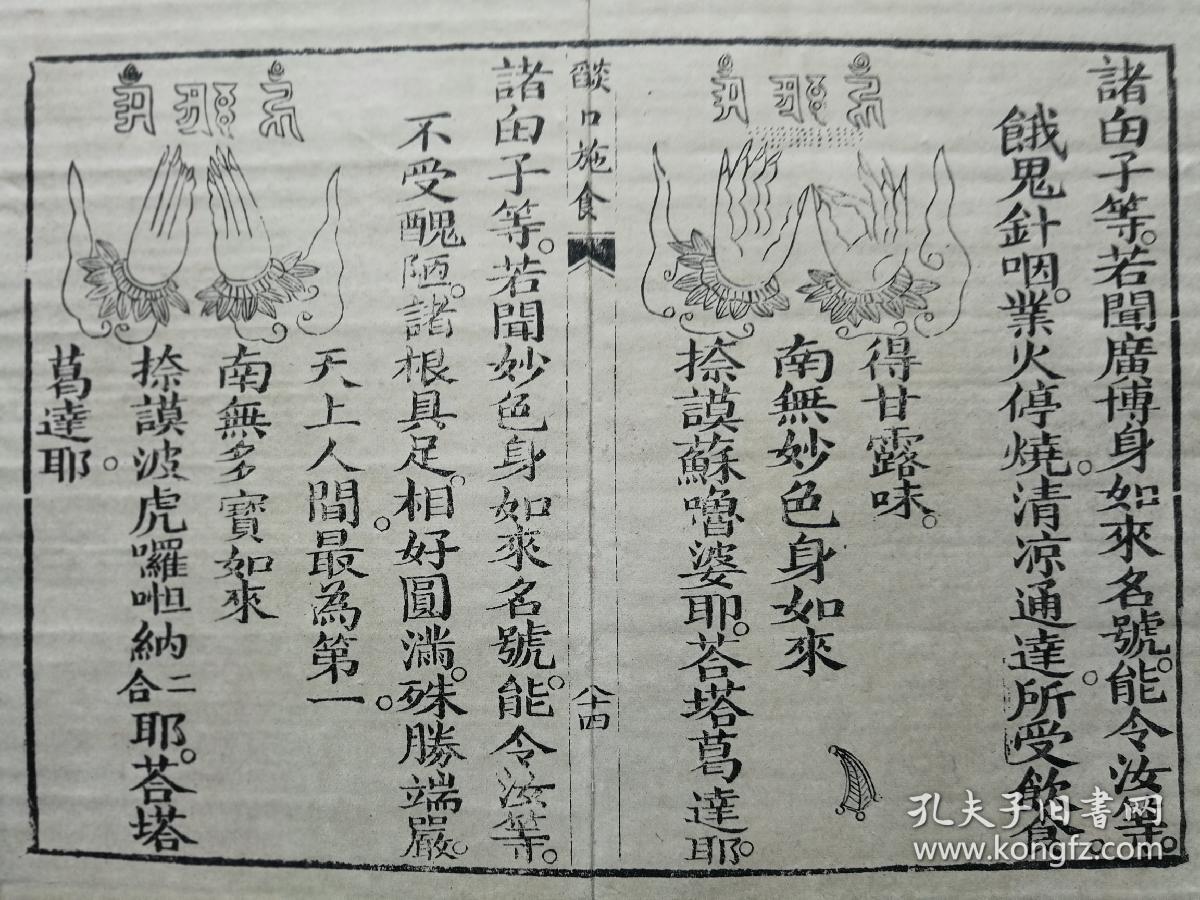 諸囱子等。若聞廣博身如來名號。能令汝等。
餓鬼針咽。業火停燒。清凉通達。所受飲食。
得甘露味。
南無妙色身如來
捺謨蘇嚕婆耶。荅塔葛達耶。
燄口施食
八十四
諸囱子等。若聞妙色身如來名號。能令汝等。
不受醜陋。諸根具足。相好圓滿。殊勝端嚴。
天上人間。最為第一。
南無多寶如來
捺謨波虎囉怛納二合耶。荅塔
葛達耶。
孔夫子旧書网
www.kongfz.com